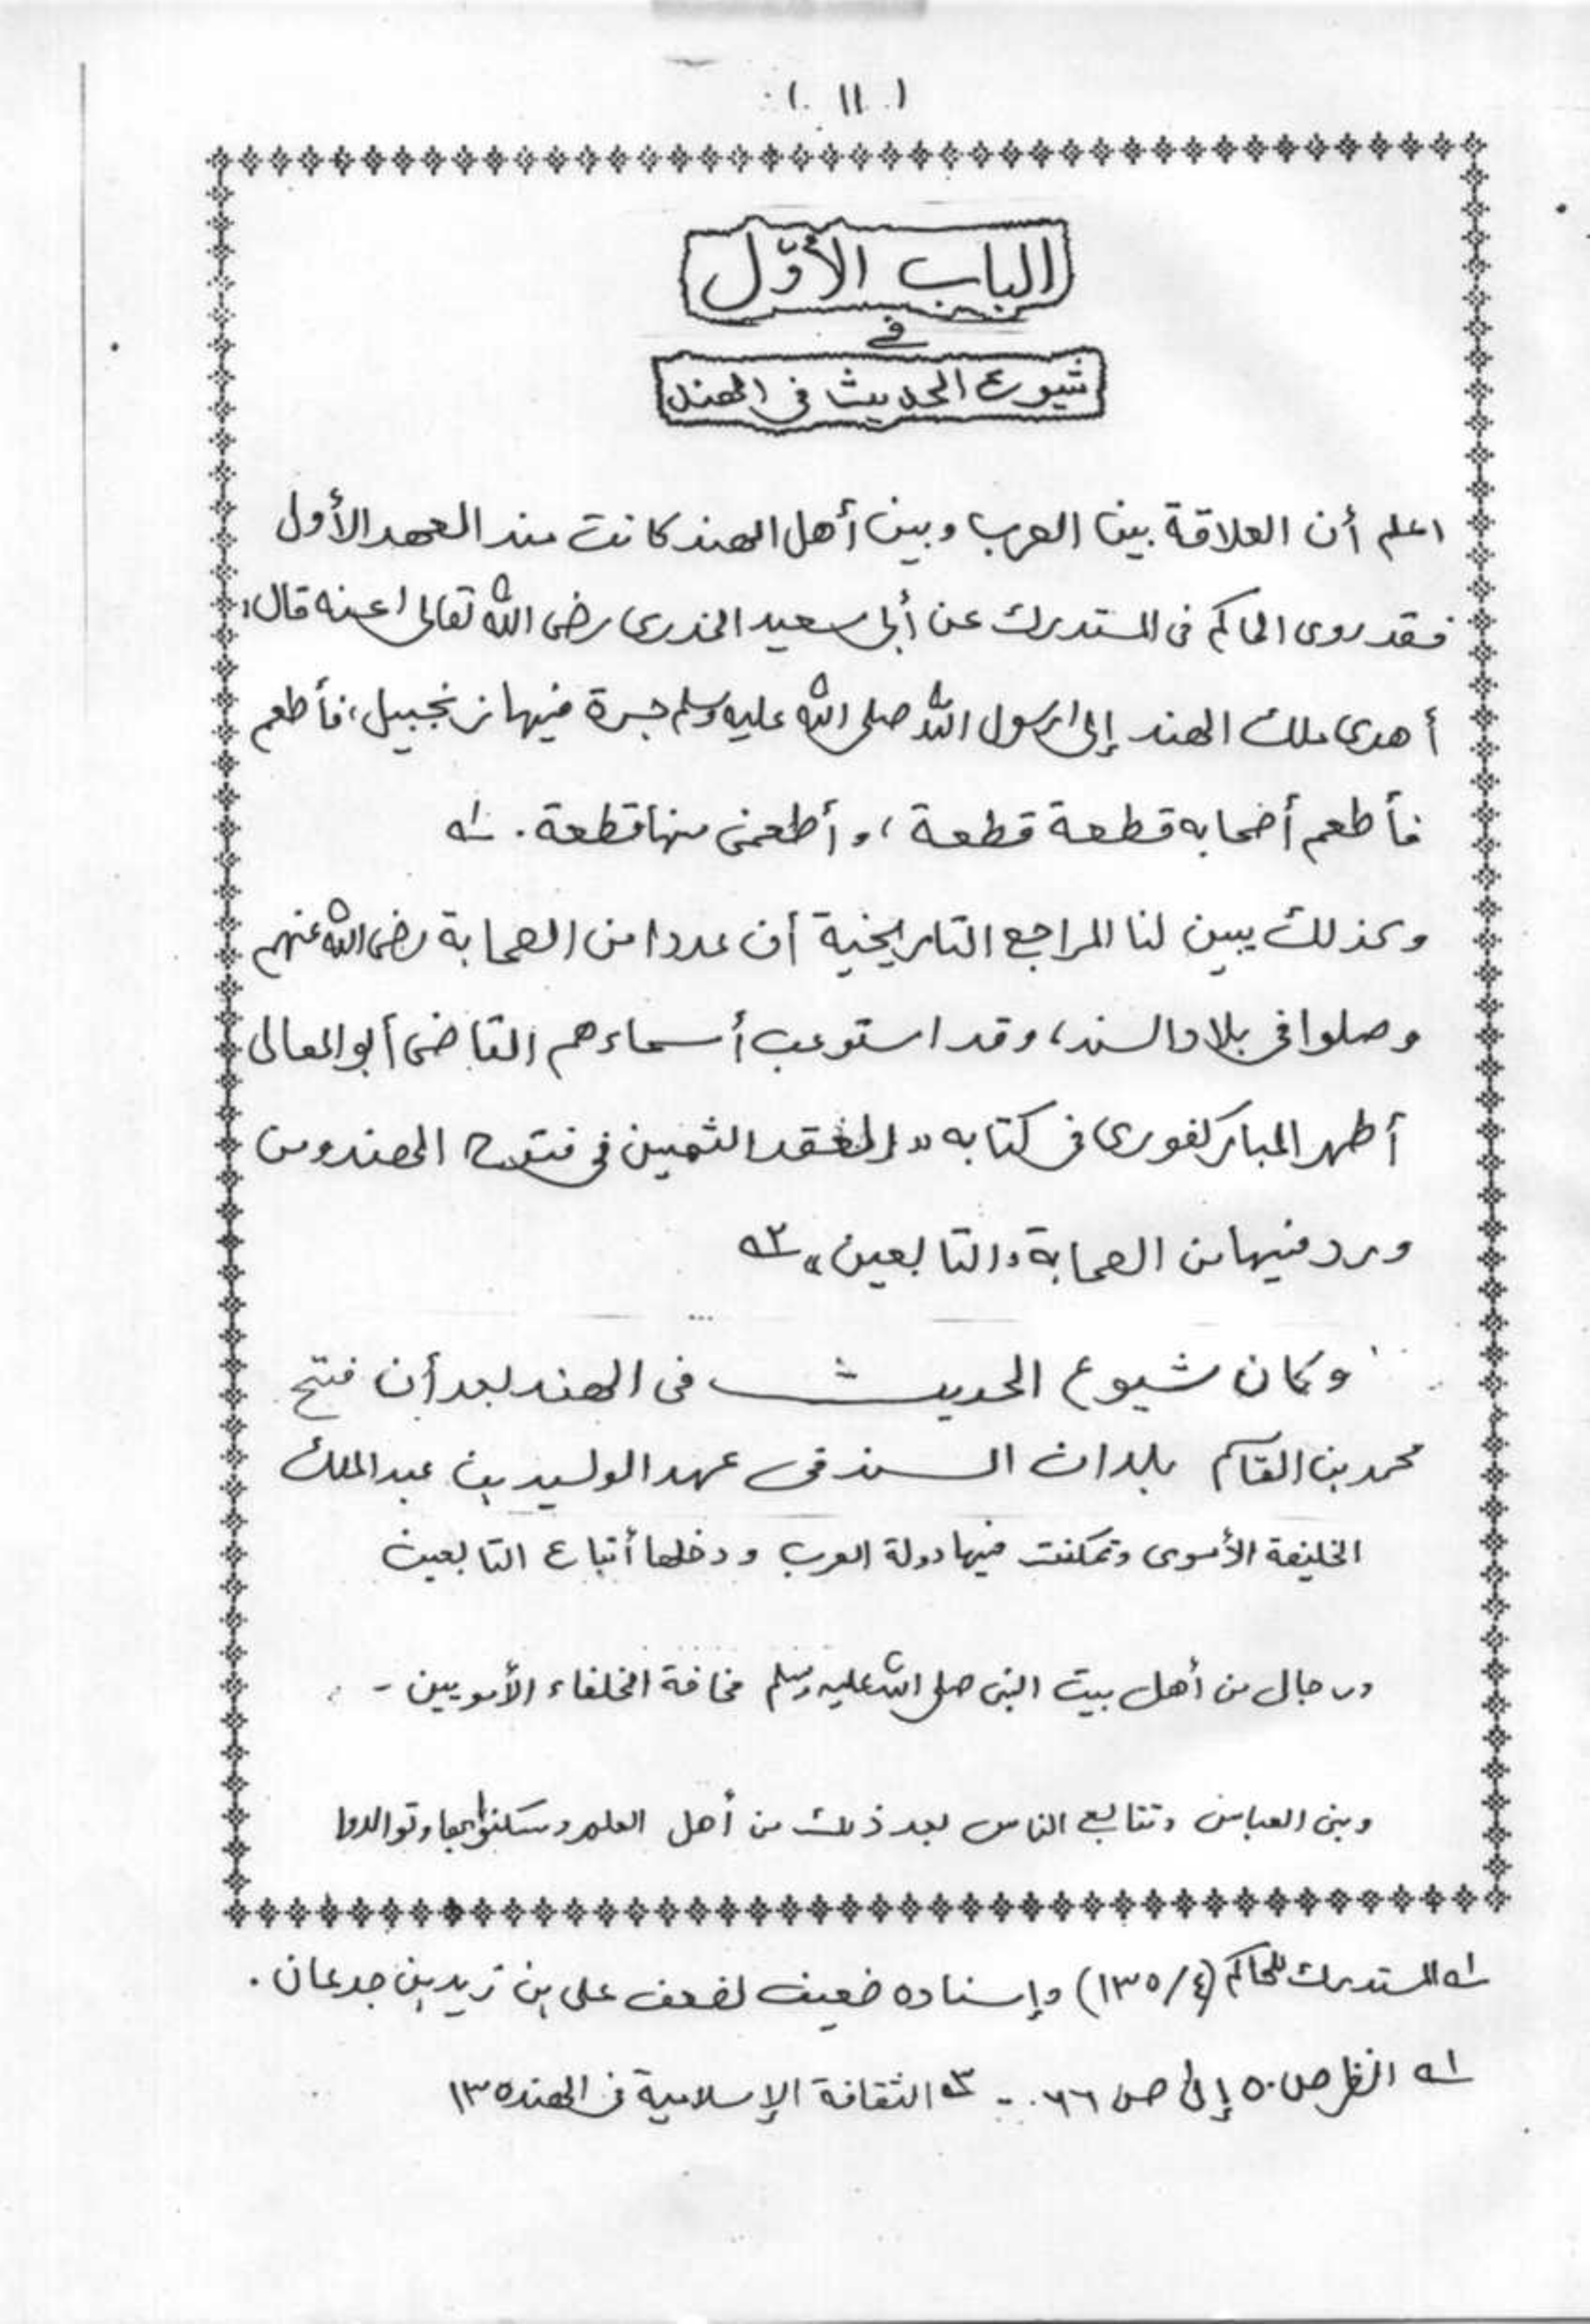 ( ١١ )
الباب الأوّل
في
شيوع الحديث في الهند
اعلم أن العلاقة بين العرب وبين أهل الهند كانت منذ العهد الأول
فقد روى الحاكم في المستدرك عن أبي سعيد الخدري رضى الله تعالى عنه قال:
أهدى ملك الهند إلى رسول الله صلى الله عليه وسلم جرة فيها زنجبيل، فأطعم
فأطعم أصحابه قطعة قطعة، وأطعمني منها قطعة. ١ه
وكذلك يبين لنا المراجع التاريخية أن عددا من الصحابة رضى الله عنهم
وصلوا في بلاد السند، وقد استوعب أسماءهم القاضى أبو المعالى
أطهر المباركفورى في كتابه "العقد الثمين في فتوح الهند ومن
ورد فيها من الصحابة والتابعين" ٢ه
وكان شيوع الحديث في الهند بعد أن فتح
محمد بن القاسم بلدان السند في عهد الوليد بن عبد الملك
الخليفة الأموى وتمكنت فيها دولة العرب ودخلها أتباع التابعين
ورجال من أهل بيت النبى صلى الله عليه وسلم مخافة الخلفاء الأمويين -
وبنى العباس وتتابع الناس بعد ذلك من أهل العلم وسكنوا بها وتوالدوا
١ه المستدرك للحاكم (٤/١٣٥) وإسناده ضعيف لضعف على بن زيد بن جدعان.
١ه انظر ص ٥٠ إلى ص ٦٦ - ٣ه الثقافة الإسلامية في الهند ١٣٥